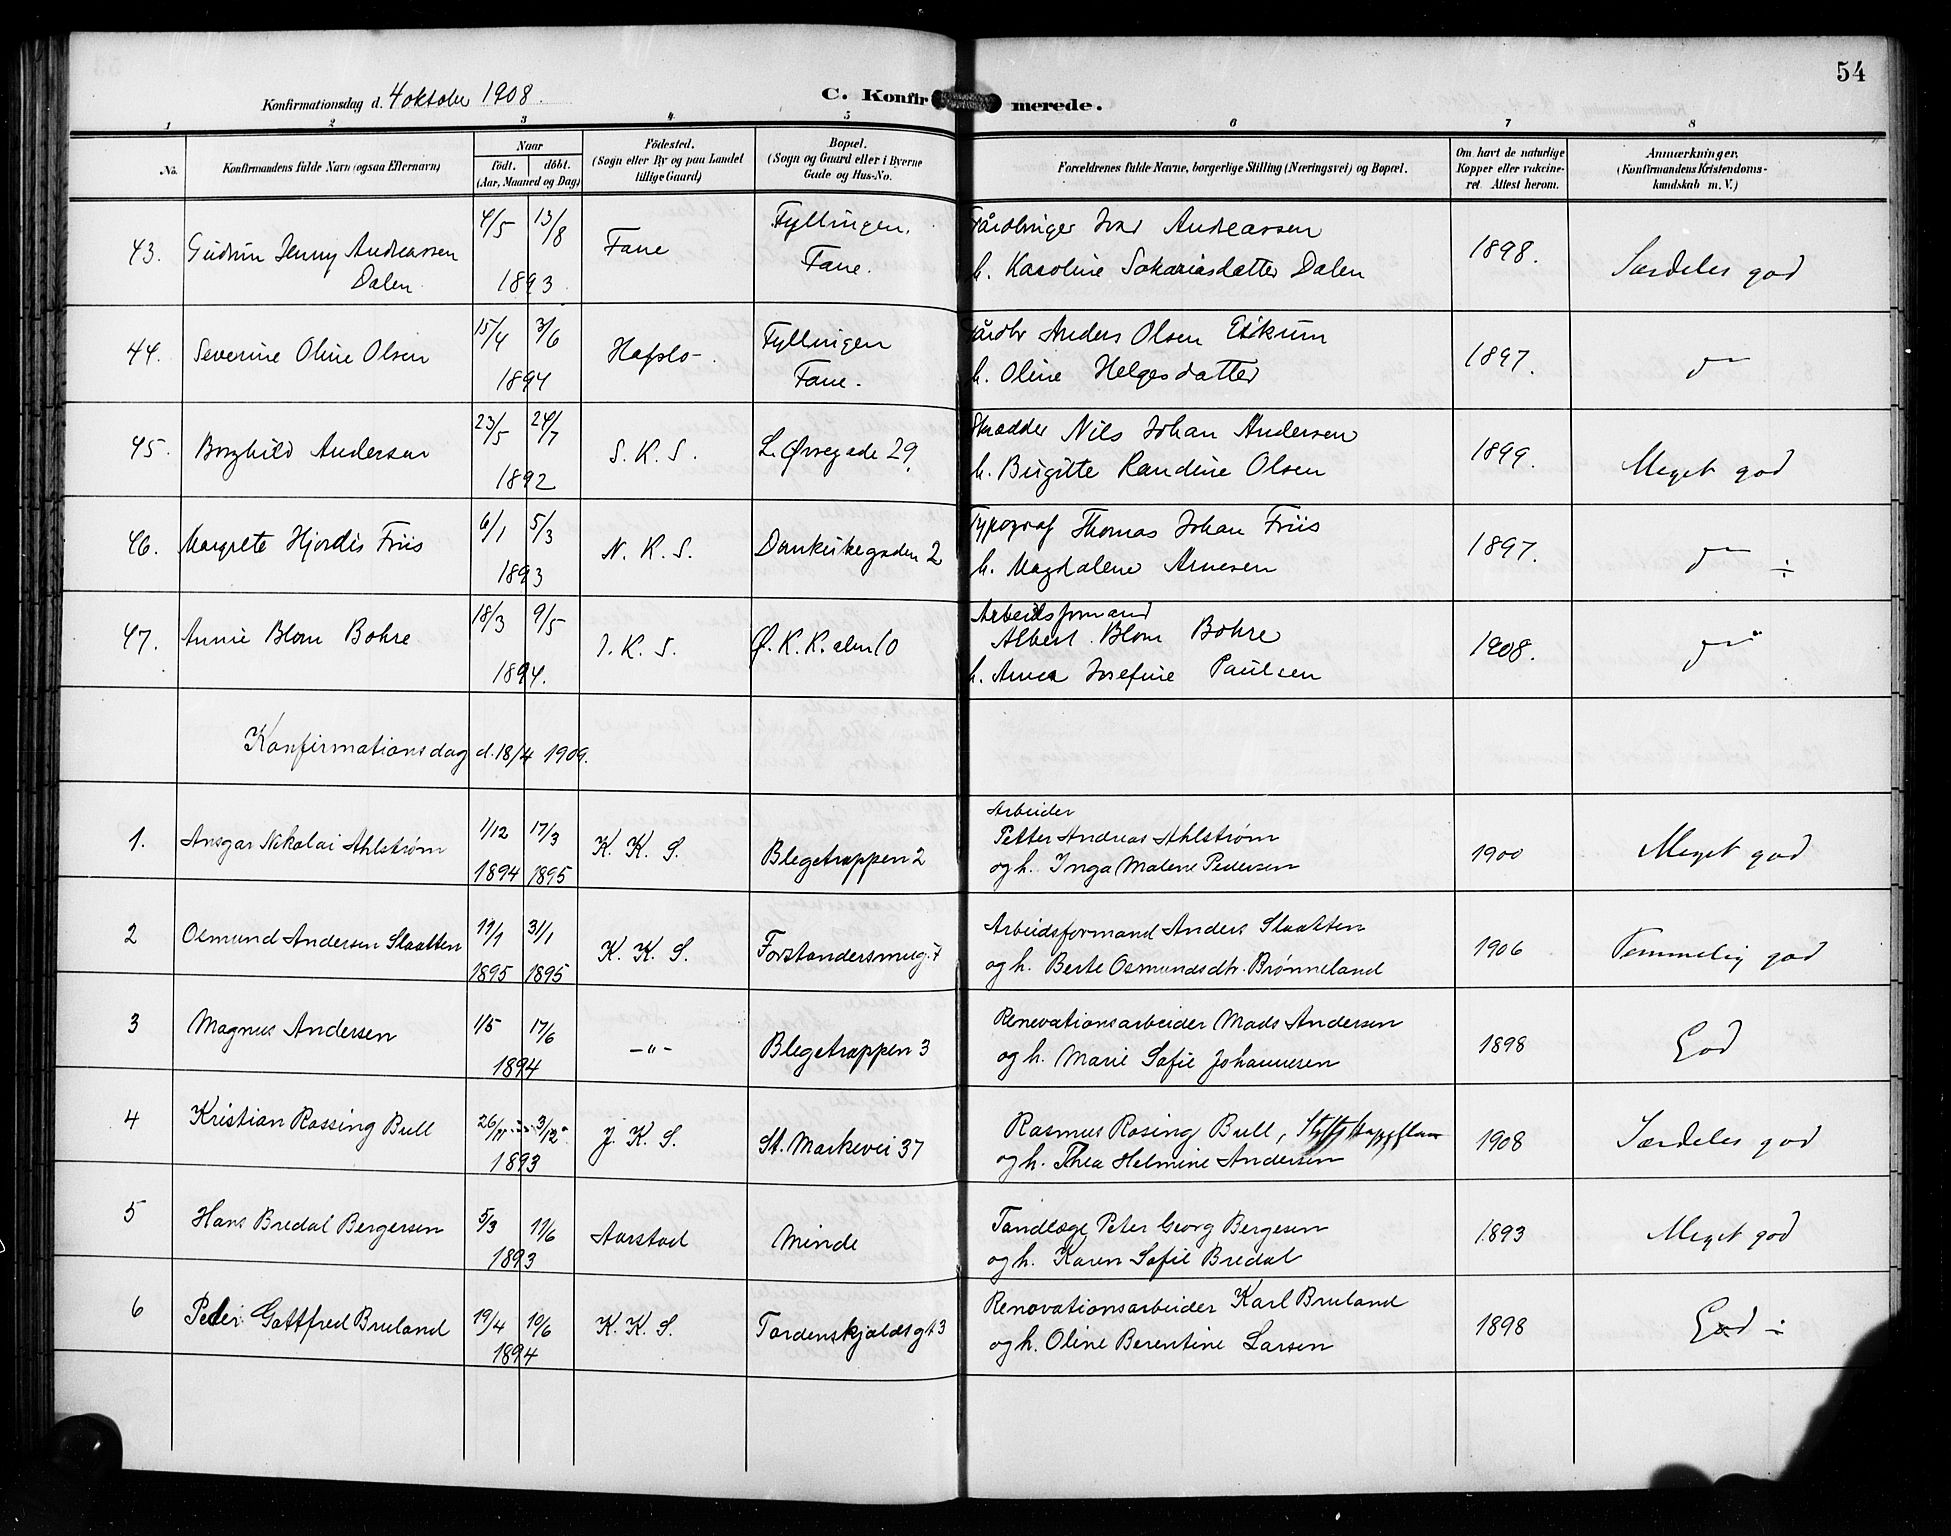 54
Konfirmationsdag d. 4 oktober 1908.
C. Konfirmerede.
1 2 3 4 5 6 7 8
No. Konfirmandens fulde Navn (ogsaa Efternavn) Naar Födested. Bopæl. Forældrenes fulde Navne, borgerlige Stilling (Næringsvei) og Bopæl. Om havt de naturlige Anmærkninger.
födt. döbt. (Sogn eller By og paa Landet (Sogn og Gaard eller i Byerne Kopper eller vakcine- (Konfirmandens Kristendoms-
(Aar, Maaned og Dag) tillige Gaard) Gade og Hus-No. ret. Attest herom. kundskab m. V.)
43. Gudrun Jenny Andreassen Dalen 4/5 13/8 1893 Fane Fyllingen, Fane. Gårdbruger Ivar Andreassen
h. Karoline Sakariasdatter Dalen 1898. Særdeles god
44. Severine Oline Olsen 15/4 3/6 1894 Hafslo- Fyllingen Fane. Gårdbr Anders Olsen Eikum
h. Oline Helgesdatter 1897. do
45. Borghild Andersen 23/5 24/7 1892 S. K. S. L. Øvregade 29. Skrædder Nils Johan Andersen
h. Birgitte Randine Olsen 1899. Meget god
46. Margrete Hjordis Friis 6/1 5/3 1893 N. K. S. Dankirkegaden 2 Typograf Thomas Johan Friis
h. Magdalene Arnesen 1897. do ÷
47. Annie Blom Bohre 18/3 9/5 1894. J. K. S. Ø. K. K. alm 10 Arbeidsformand
Albert Blom Bohre
h. Anna Josefine Paulsen 1908. do
Konfirmationsdag d. 18/4 1909.
1. Ansgar Nikolai Ahlstrøm 1/12 17/3 1894 1895 K. K. S. Blegetrappen 2 Arbeider
Petter Andreas Ahlstrøm
og h. Inga Malene Pedersen 1900 Meget god
2 Osmund Andersen Slaatten 19/1 31/1 1895 1895 K. K. S. Forstandersmug. 7 Arbeidsformand Anders Slaatten
og h. Berte Osmundsdtr. Brønneland 1906 Temmelig god
3 Magnus Andersen 1/5 17/6 1894 -"- Blegetrappen 3 Renovationsarbeider Mads Andersen
og h. Marie Sofie Johannesen 1898 God
4 Kristian Rossing Bull 26/11 3/12 1893 J. K. S. St. Markevei 37 Rasmus Rosing Bull,
og h. Thea Helmine Andersen 1908 Særdeles god
5 Hans Bredal Bergersen 5/3 11/6 1893 Aarstad Minde Tandlæge Peter Georg Bergesen
og h. Karen Sofie Bredal 1893 Meget god
6 Peder Gottfred Bruland 19/4 10/6 1894 K. K. S. Tordenskjoldsgt 3 Renovationsarbeider Karl Bruland
og h. Oline Berentine Larsen 1898 God ÷